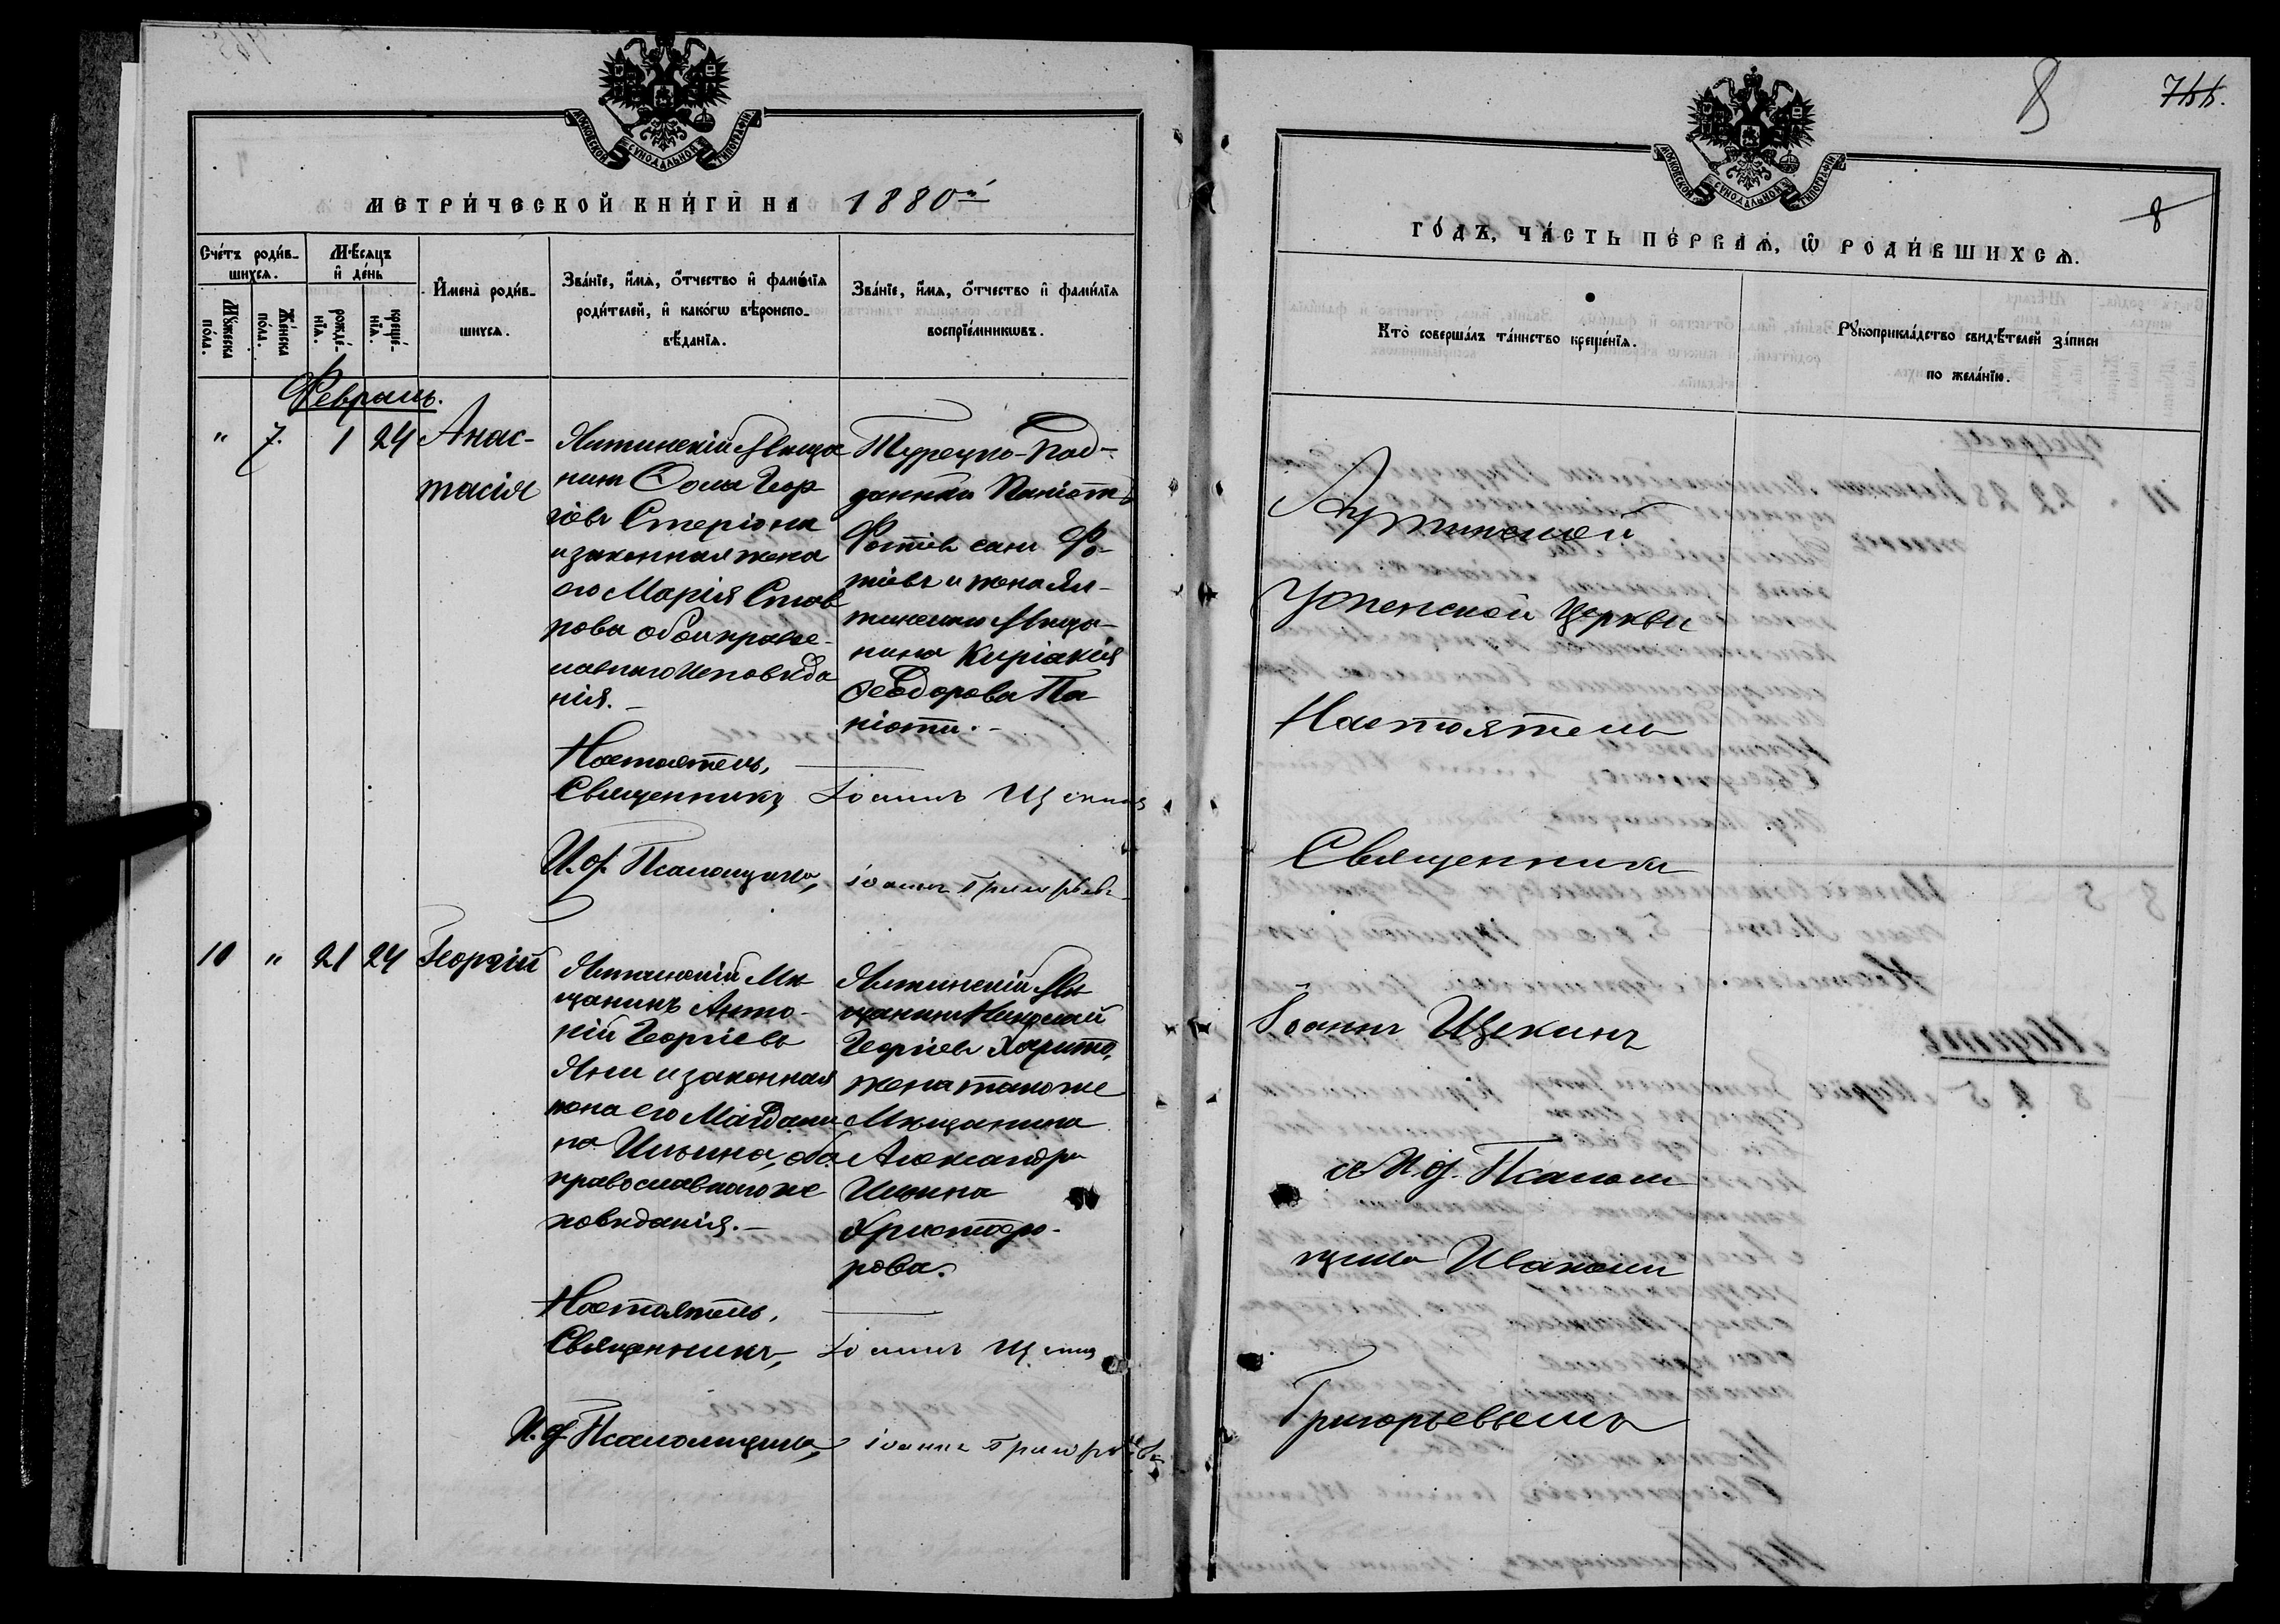 МОСКОВСКОЙ СѴНОДАЛЬНОЙ ТИПОГРАФІИ
МЕТРИ́ЧЕСКОЙ КНИ́ГИ НА 1880й
Сче́тъ роди́в-
шихсѧ.
Мѣ́сѧцъ
и҆ де́нь
Мꙋ́жеска
по́ла.
Же́нска
по́ла.
рожде́-
нїѧ.
креще́-
нїѧ.
И҆мена̀ роди́в-
шихсѧ.
Зва́нїе, и҆́мѧ, ѻ҆́тчество и҆ фамı́лїѧ
роди́телей, и҆ како́гѡ вѣроиспо-
вѣ́данїѧ.
Зва́нїе, и҆́мѧ, ѻ҆́тчество и҆ фами́лїѧ
воспрїе́мникѡвъ.
Февраль.
" 7. 1 24 Анас-
тасія
Ялтинскій Мѣща
нинъ Ѳома Геор
гіевъ Стеріона
и законная жена
его Марія Став
рова оба православ-
наго исповѣда
нія.-
Турецко-Под-
данный Паніотъ
Фотіевъ сынъ Фо-
тіевъ и жена Ял-
тинскаго Мѣща-
нина Киріакія
Ѳеодорова Па
ніоти.-
Настоятель,
Священникъ Іоаннъ Щекинъ
И. д. Псаломщика, Іоаннъ Григорьевъ
10 " 21 24 Георгій
Ялтинскій Мѣ
щанинъ Анто-
ній Георгіевъ
Яни и законная
жена его Магдали
на Ильина, оба
православнаго ис
повѣданія.-
Ялтинскій Мѣ
щанинъ Николай
Георгіевъ Харито,
жена таково же
Мѣщанина
Александра
Ильина
Христофо-
рова.
Настоятель,
Священникъ, Іоаннъ Щекинъ
И. д. Псаломщика, Іоаннъ Григорьевъ
8 766.
МОСКОВСКОЙ СѴНОДАЛЬНОЙ ТИПОГРАФІИ
8
ГО́ДЪ, ЧА́СТЬ ПЕ́РВАѦ, Ѡ҆ РОДИ́ВШИХСѦ.
Кто̀ соверша́лъ та́инство креще́нїѧ.
Рꙋкоприкла́дство свидѣ́телей за́писи
по жела́нїю.
Аутинской
Успенской Церкви
Настоятель
Священникъ
Іоаннъ Щекинъ
съ И. д. Псалом
щика Иваномъ
Григорьевымъ